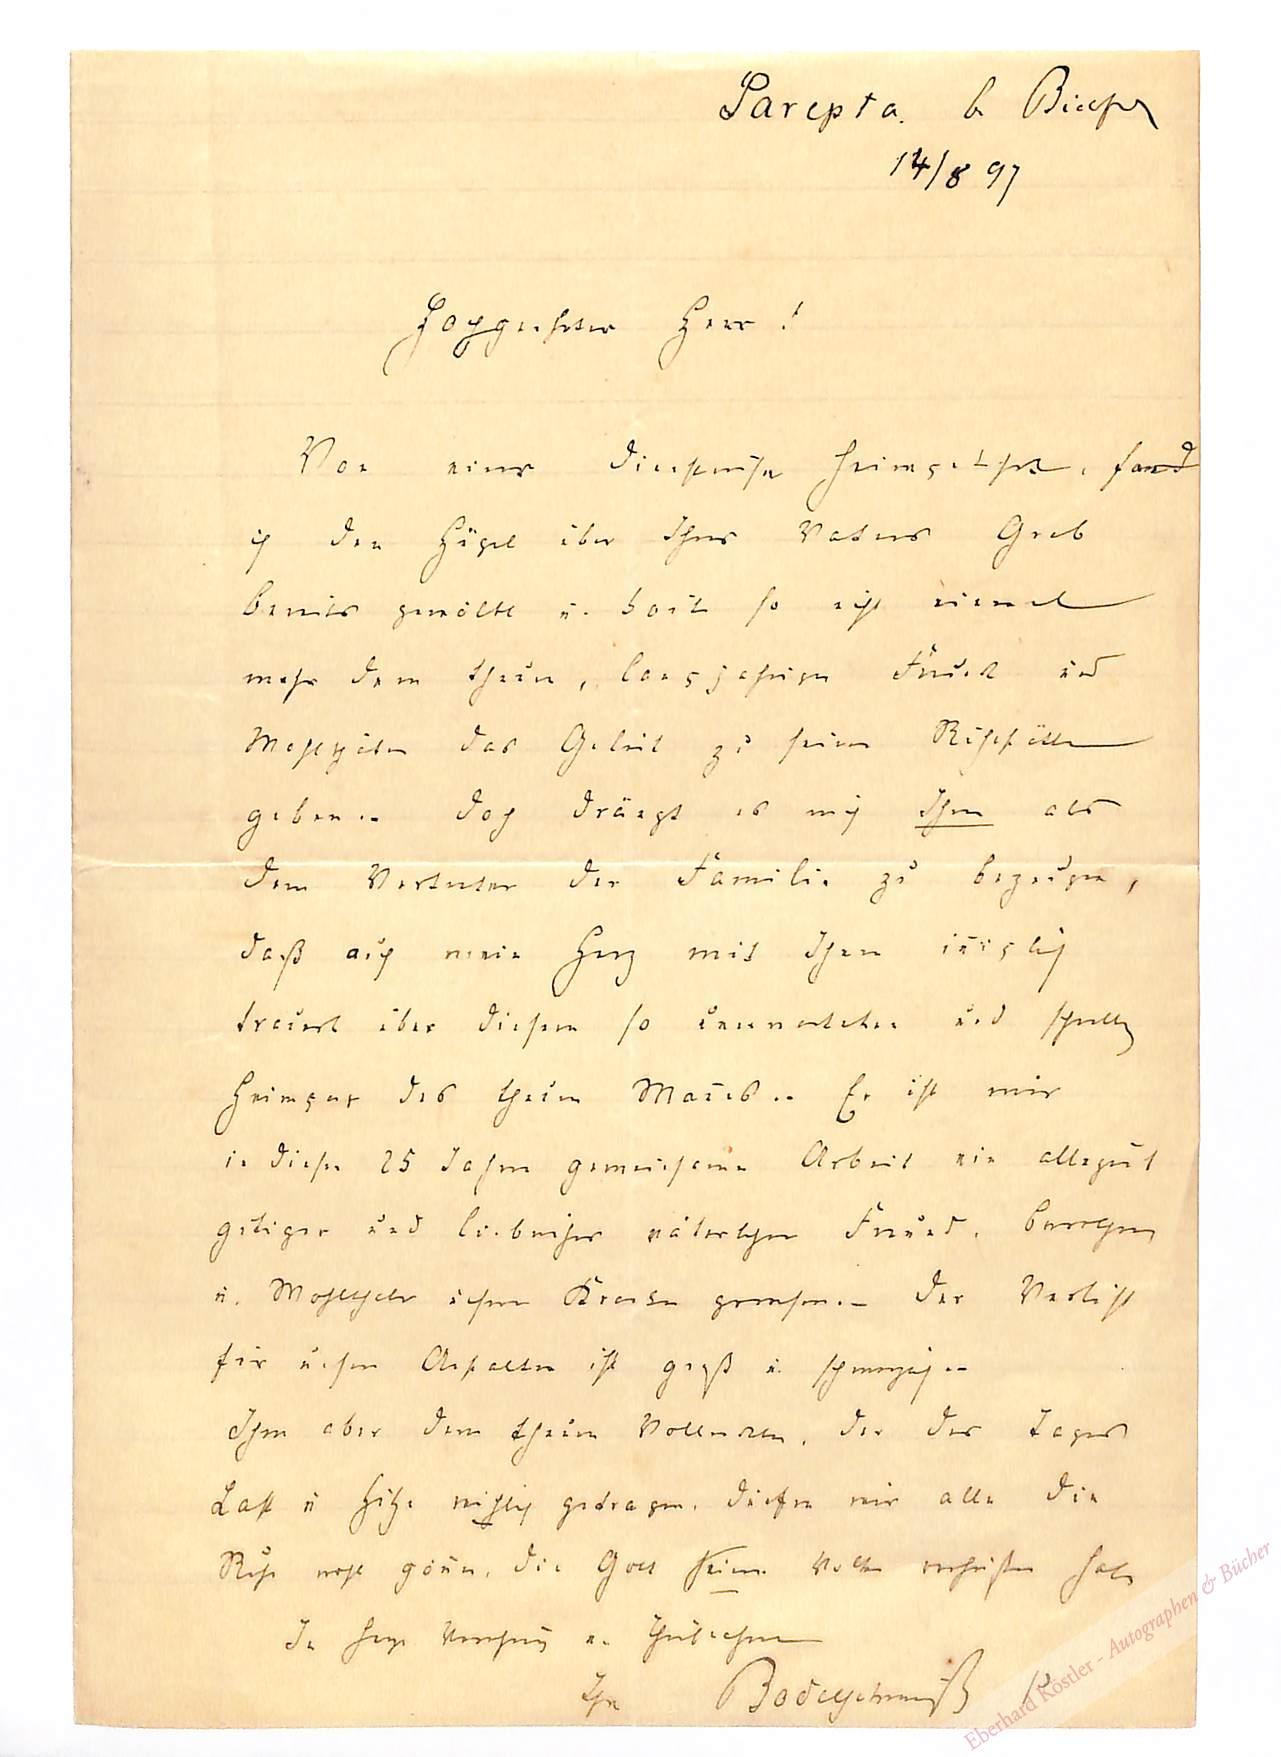 Sarepta. b Bielefeld
14/8 97
Hochgeehrter Herr!
Von einer Dienstreise heimgekehrt, fand
ich den Hügel über Ihres Vaters Grab
bereits gewölbt u. konnte so nicht einmal
mehr dem theuren, langjährigen Freund und
Wohlthäter das Geleit zu seiner Ruhestätte
geben. – Doch drängt es mich Ihnen als
dem Vertreter der Familie zu bezeugen,
daß auch mein Herz mit Ihnen inniglich
trauert über diesen so unerwarteten und schnellen
Heimgang des theuren Mannes. – Er ist mir
in diesen 25 Jahren gemeinsamer Arbeit ein allezeit
gütiger und liebreicher väterlicher Freund,
u. Wohlthäter unserer Kranken gewesen. – Der Verlust
für unsere Anstalten ist groß u. schmerzlich. –
Ihm aber dem theuren Vollendeten, der des Tages
Last u Hitze reichlich getragen, dürfen wir alle die
Ruhe wohl gönnen, die Gott seinem Volke verheißen hat.
In Verehrung u. Theilnahme
Ihr Bodelschwingh P
Eberhard Köstler - Autographen & Bücher